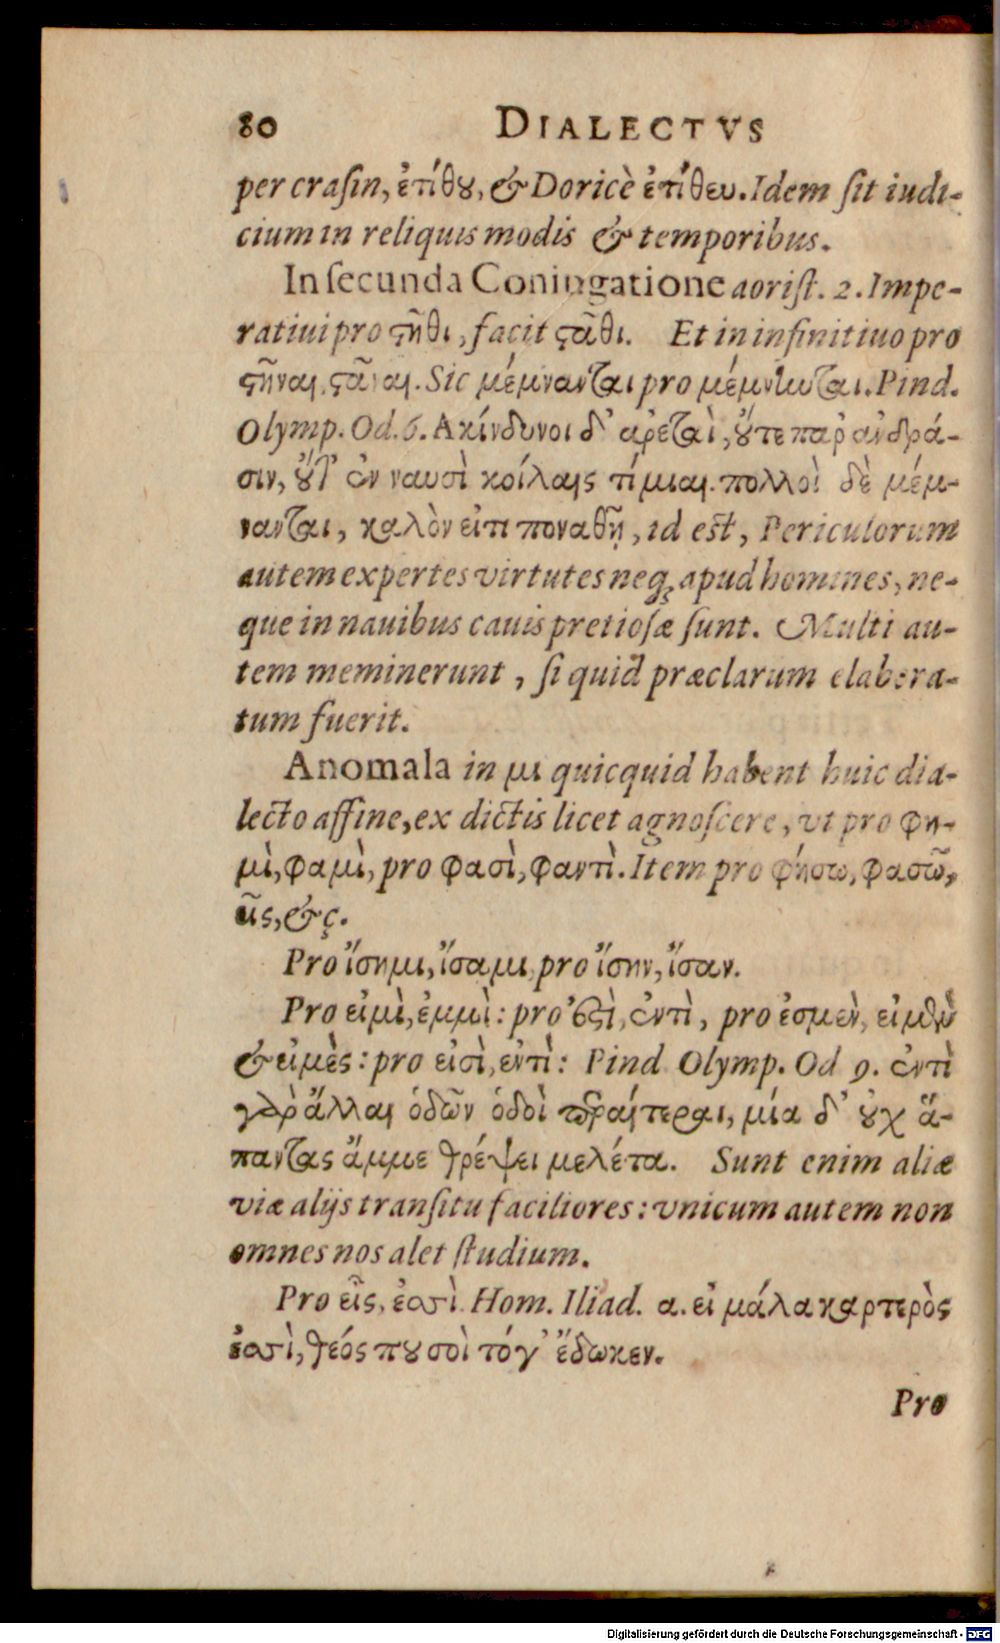 80 DIALECTVS
per craſin, ἐτίθȣ, & Doricè ἐτίθευ. Idem ſit iudi-
cium in reliquis modis & temporibus.
In ſecunda Coniugatione aoriſt. 2. Impe-
ratiui pro ϛῆθι, facit ϛᾶθι. Et in infinitiuo pro
ϛῆναι, ϛᾶναι. Sic μέμνανται pro μέμνηνται. Pind.
Olymp. Od. 6. Ακίνδυνοι δ᾽ ἀρεταὶ, ȣ̓́τε παρ᾽ ἀνδρά-
σιν, ȣ̓́τ᾽ ἐν ναυσὶ κοίλαις τίμιαι. πολλοὶ δὲ μέμ-
νανται, καλὸν εἴτι ποναθῇ, id est, Periculorum
autem expertes virtutes neq; apud homines, ne-
que in nauibus cauis pretioſæ ſunt. Multi au-
tem meminerunt, ſi quid præclarum elabora-
tum fuerit.
Anomala in μι quicquid habent huic dia-
lecto affine, ex dictis licet agnoſcere, vt pro φη-
μὶ, φαμὶ, pro φασὶ, φαντὶ. Item pro φήσω, φασῶ,
εῖς, &c.
Pro ἴσημι, ἴσαμι, pro ἴσην, ἴσαν.
Pro εἰμὶ, ἐμμὶ: pro ἐϛὶ, ἐντὶ, pro ἐσμὲν, εἰμὲν
& εἰμὲς: pro εἰσὶ, εντὶ: Pind Olymp. Od 9. ἐντὶ
γὰρ ἄλλαι ὁδῶν ὁδοὶ περαίτεραι, μία δ᾽ ȣ̓χ ἅ-
παντας ἄμμε θρέψει μελέτα. Sunt enim aliæ
viæ alijs tranſitu faciliores: vnicum autem non
omnes nos alet ſtudium.
Pro εἶς, ἐσσὶ. Hom. Iliad. α. εἰ μάλα καρτερὸς
ἐσσὶ, θεός πȣ σοὶ τόγ᾽ ἔδωκεν.
Pro
Digitalisierung gefördert durch die Deutsche Forschungsgemeinschaft - DFG